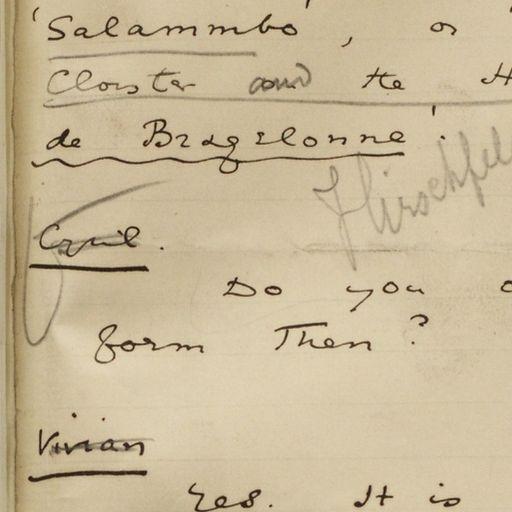 'Salammbo', or
Cloister and the H
de Bragelonne'.
Hirschfel
Cyril.
Do you o
form then?
Vivian
Yes. It is